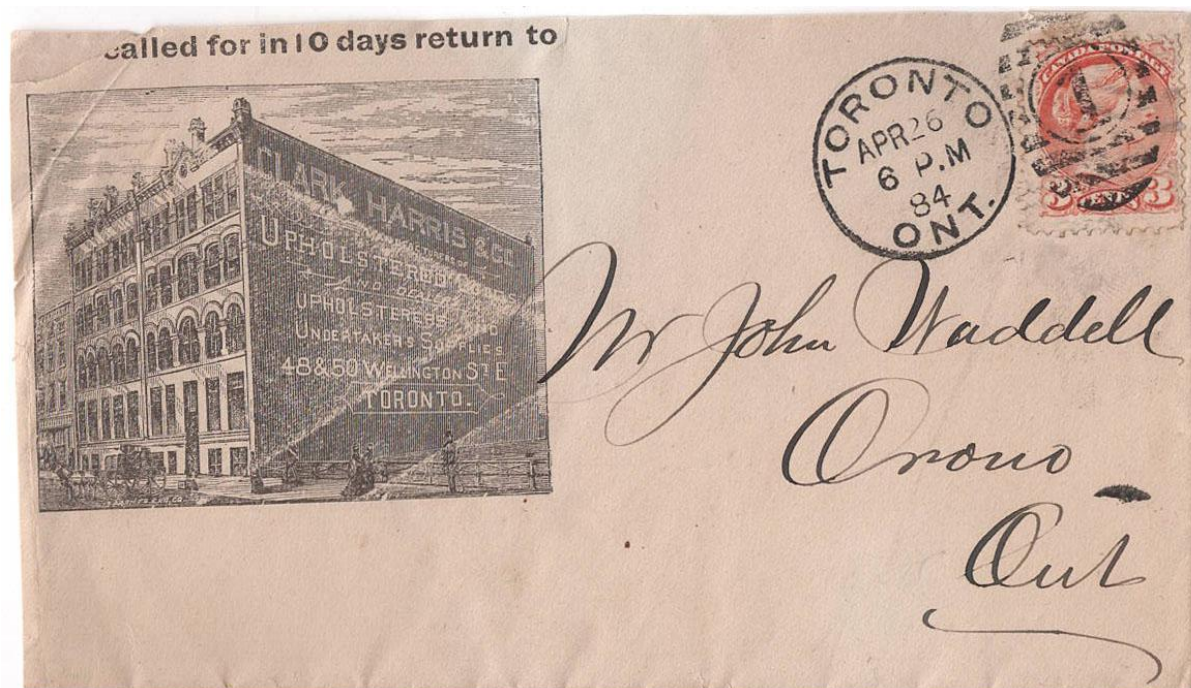 called for in 10 days return to
CLARK, HARRIS & CO
UPHOLSTERED
AND DEALERS
UPHOLSTERERS AND
UNDERTAKERS SUPPLIES
48 & 50 WELLINGTON ST E
TORONTO.
TORONTO
APR 26
6 P.M
84
ONT.
CANADA POSTAGE
1
3 CENTS 3
Mr John Waddell
Orono
Ont